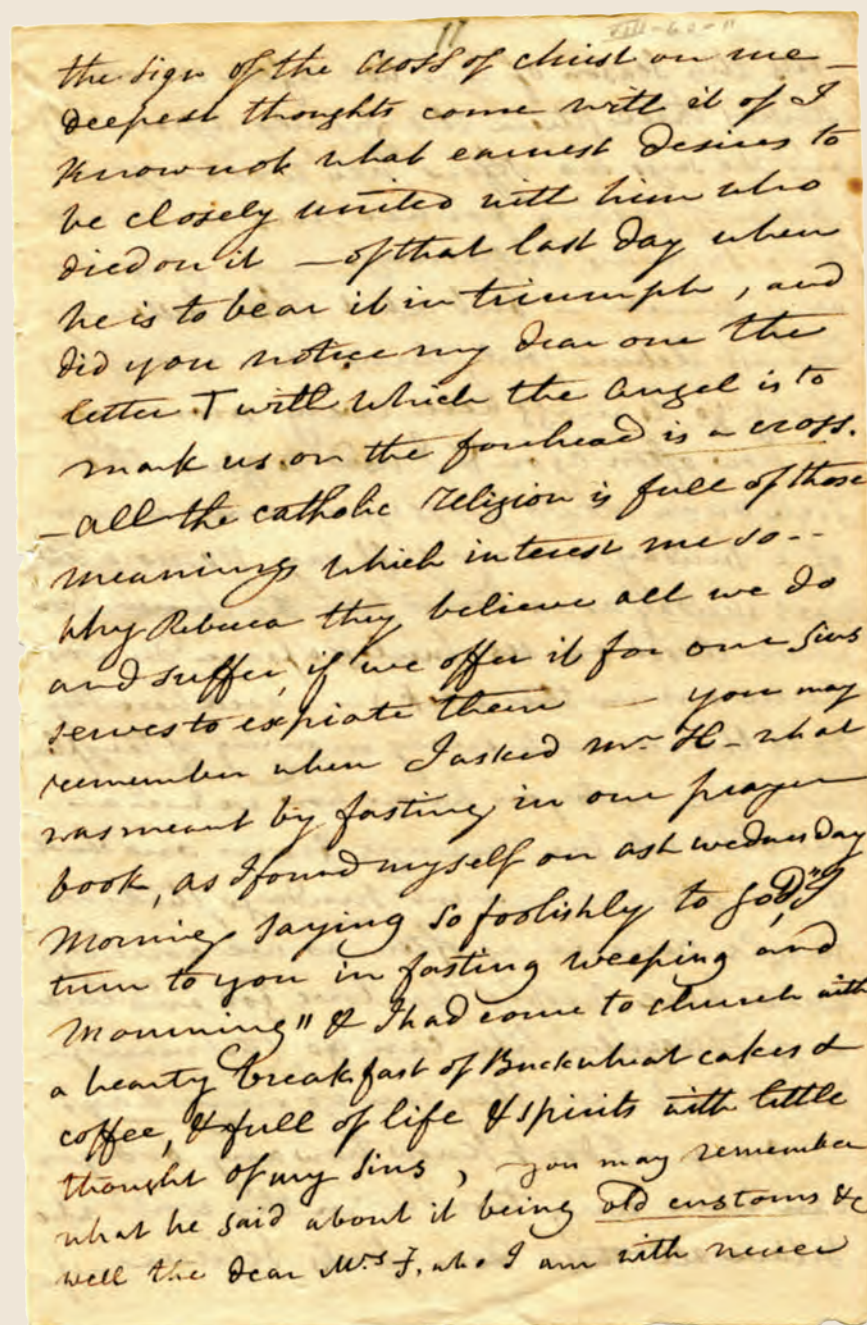 11
the sign of the Cross of christ on me –
deepest thoughts come with it of I
know not what earnest desires to
be closely united with him who
died on it – of that last day when
he is to bear it in triumph, and
did you notice my dear one the
letter T with which the Angel is to
mark us on the forehead is a cross.
– all the catholic religion is full of those
meanings which interest me so --
why Rebecca they believe all we do
and suffer, if we offer it for our sins
serves to expiate them – you may
remember when I asked Mr. H – what
was meant by fasting in our prayer
book, as I found myself on ash wednesday
Morning saying so foolishly to God, "I
turn to you in fasting weeping and
Mourning" & I had come to church with
a hearty breakfast of Buckwheat cakes &
coffee, & full of life & spirits with little
thought of my sins, you may remember
what he said about it being old customs &c
well the dear Mrs F. who I am with never